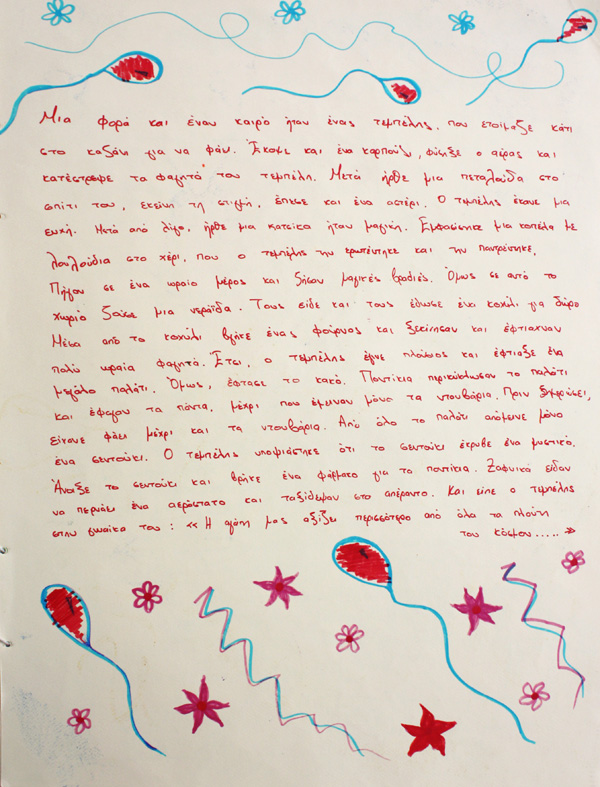 Μια φορά και έναν καιρό ήταν ένας τεμπέλης, που ετοίμαζε κάτι
στο καζάνι για να φάει. Έκοψε και ένα καρπούζι, φύσηξε ο αέρας και
κατέστρεψε τα φαγητά του τεμπέλη. Μετά ήρθε μια πεταλούδα στο
σπίτι του, εκείνη τη στιγμή, έπεσε και ένα αστέρι. Ο τεμπέλης έκανε μια
ευχή. Μετά από λίγο, ήρθε μια κατσίκα ήταν μαγική. Εμφανίστηκε μια κοπέλα με
λουλούδια στο χέρι, που ο τεμπέλης την ερωτεύτηκε και την παντρεύτηκε.
Πήγαν σε ένα ωραίο μέρος και ζήσαν μαγικές βραδιές. Όμως σε αυτό το
χωριό ζούσε μια νεράϊδα. Τους είδε και τους έδωσε ένα κοχύλι για δώρο
Μέσα από το κοχύλι βγήκε ένας φούρνος και ξεκίνησαν και έφτιαχναν
πολύ ωραία φαγητά. Έτσι, ο τεμπέλης έγινε πλούσιος και έφτιαξε ένα
μεγάλο παλάτι. Όμως, έφτασε το κακό. Ποντίκια περικύκλωσαν το παλάτι
και έφαγαν τα πάντα, μέχρι που έμειναν μόνο τα ντουβάρια. Πριν ξημερώσει,
είχανε φάει μέχρι και τα ντουβάρια. Από όλο το παλάτι απόμεινε μόνο
ένα σεντούκι. Ο τεμπέλης υποψιάστηκε ότι το σεντούκι έκρυβε ένα μυστικό.
Άνοιξε το σεντούκι και βρήκε ένα φάρμακο για τα ποντίκια. Ξαφνικά είδαν
να περνάει ένα αερόστατο και ταξίδεψαν στο απέραντο. Και είπε ο τεμπέλης
στην γυναίκα του : «Η αγάπη μας αξίζει περισσότερο από όλα τα πλούτη
του κόσμου..... »